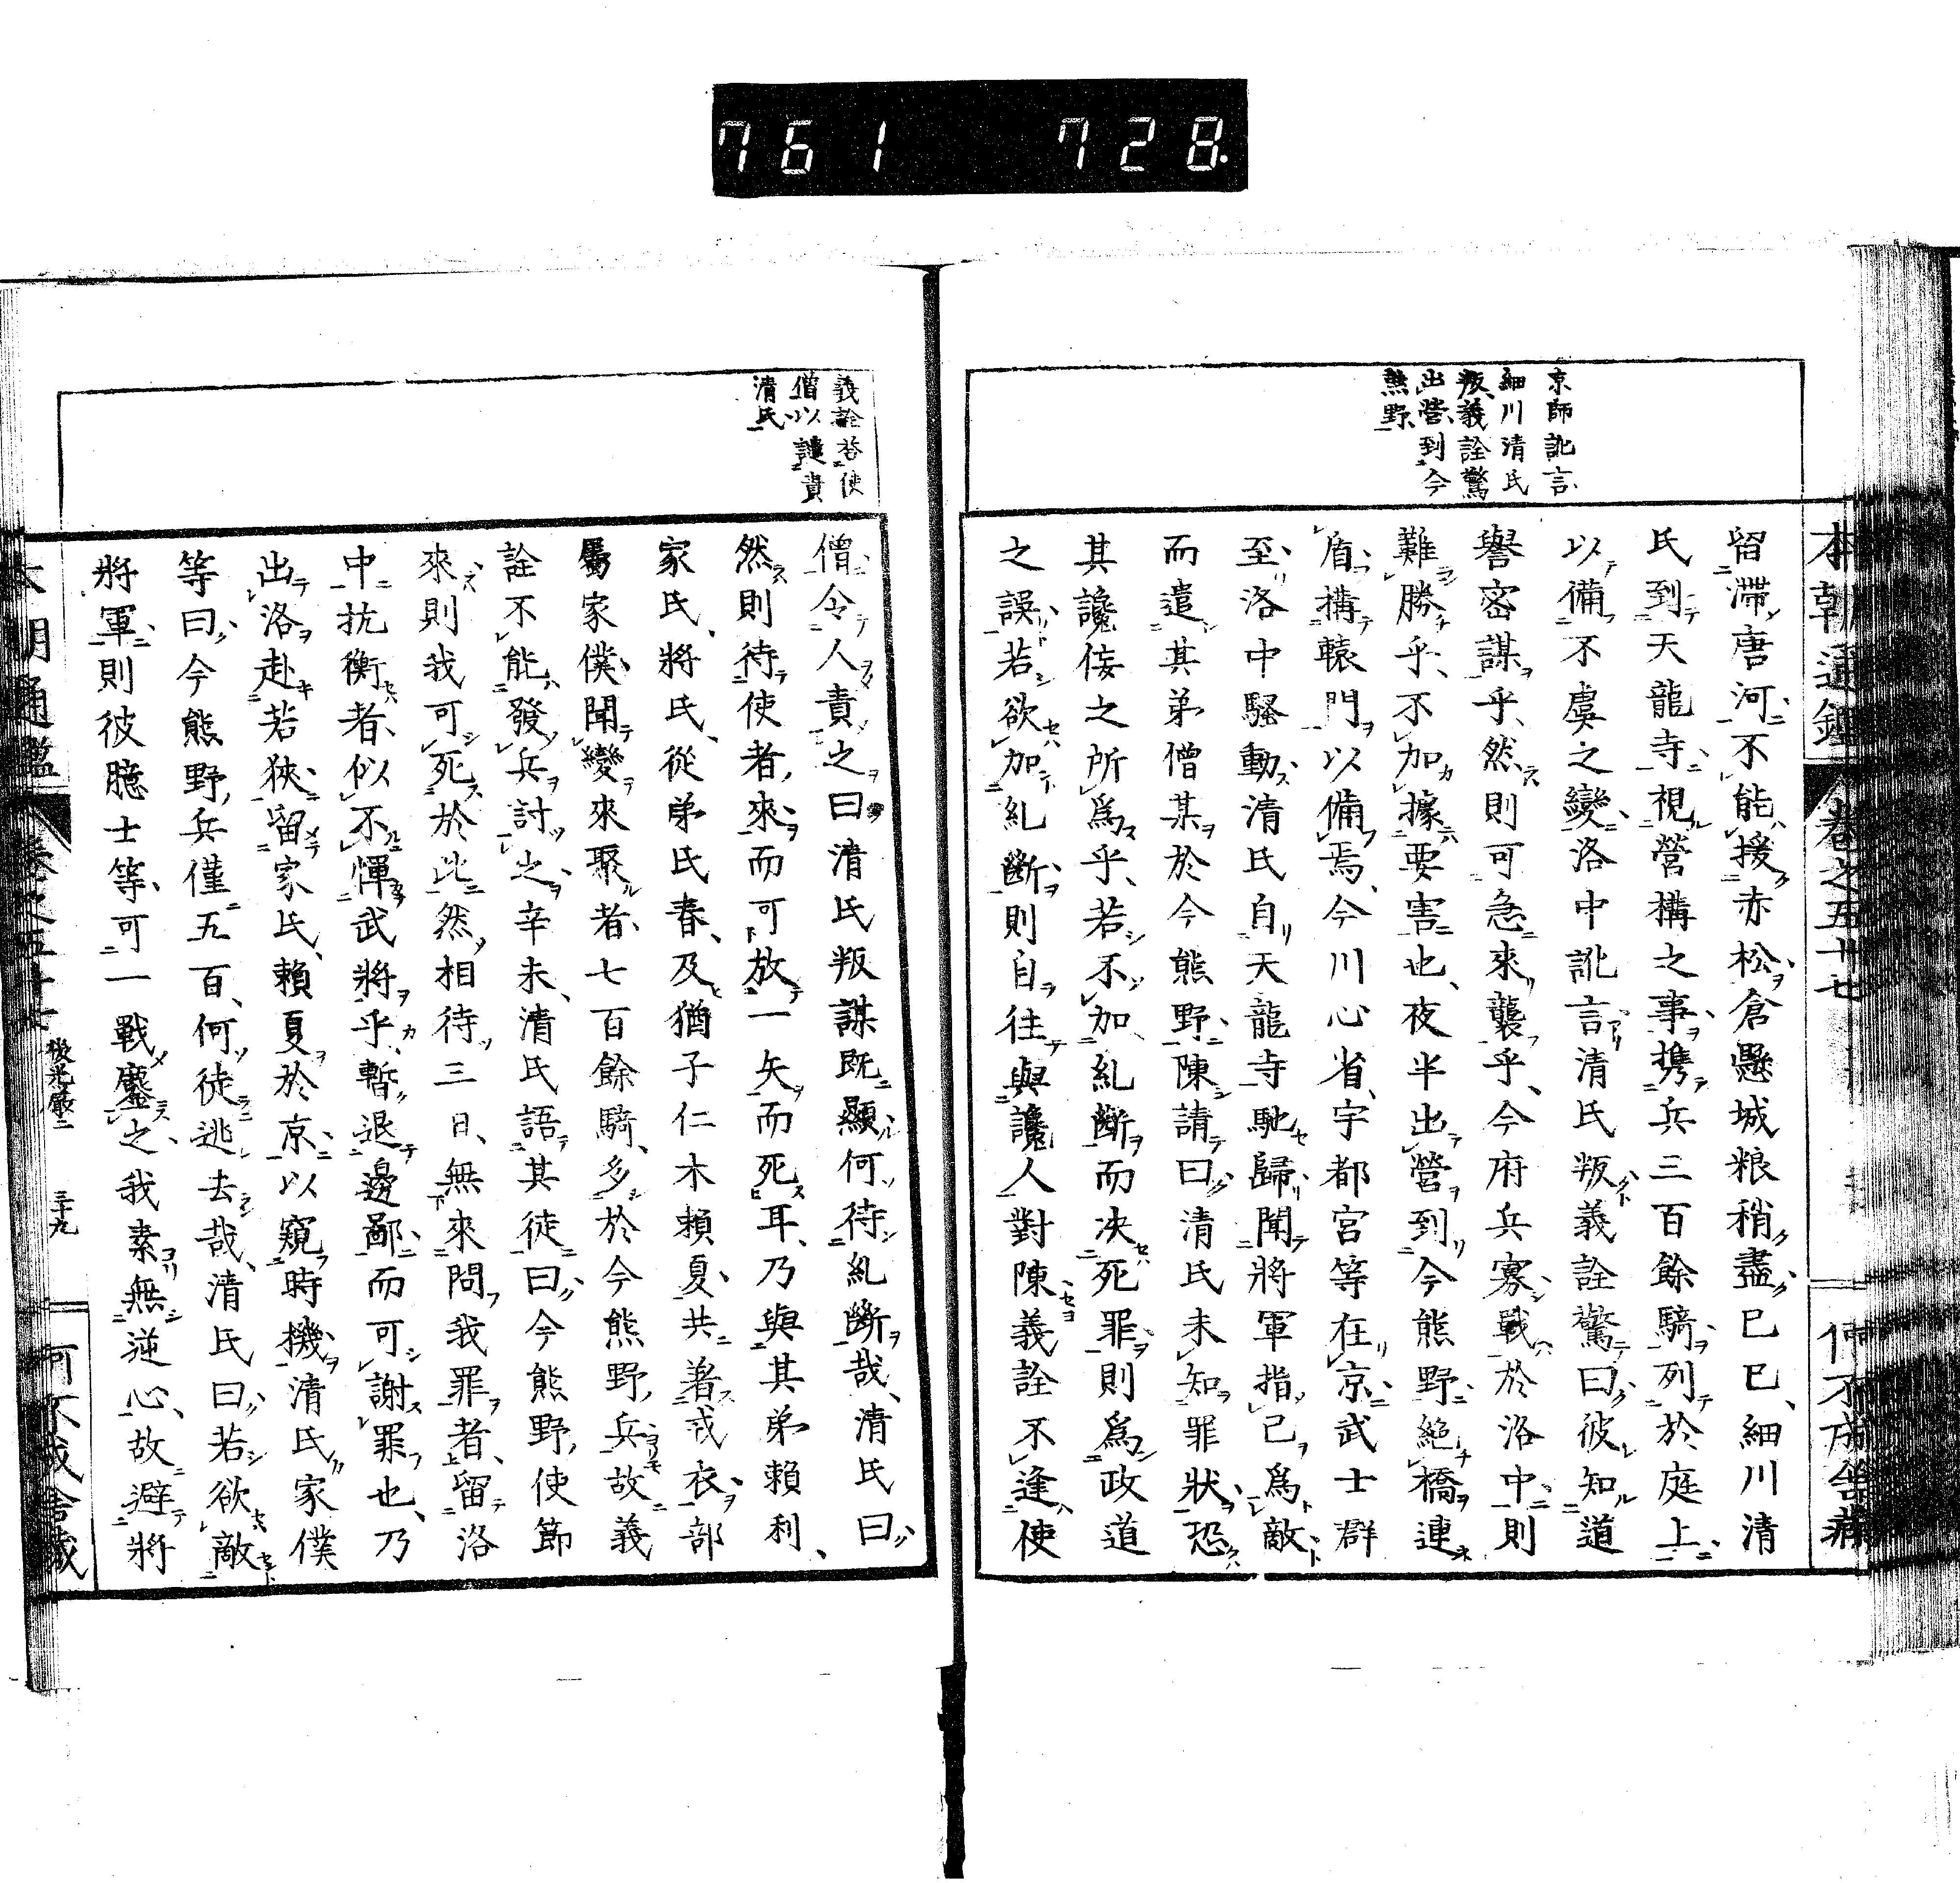 761 728
本朝通鑑 卷之五十七 何不成舎藏
京師訛言
細川清氏
叛義詮驚
出營到今
熊野
留滯唐河不能援赤松倉懸城粮稍盡巳巳細川清
氏到天龍寺視營構之事携兵三百餘騎列於庭上
以備不虞之變洛中訛言清氏叛義詮驚曰彼知道
譽密謀乎然則可急來襲乎今府兵寡戰於洛中則
難勝乎不加據要害也夜半出營到今熊野絕橋連
盾構轅門以備焉今川心省宇都宮等在京武士群
至洛中騷動清氏自天龍寺馳歸聞將軍指己爲敵
而遣其弟僧某於今熊野陳請曰清氏未知罪狀恐
其讒侫之所爲乎若不加糺斷而决死罪則爲政道
之誤若欲加糺斷則自往與讒人對陳義詮不逢使
義詮答使
僧以譴責
清氏
僧令人責之曰清氏叛謀既顯何待糺斷哉清氏曰
然則待使者來而可放一矢而死耳乃與其弟賴利
家氏將氏從弟氏春及猶子仁木賴夏共著戎衣部
屬家僕聞變來聚者七百餘騎多於今熊野兵故義
詮不能發兵討之辛未清氏語其徒曰今熊野使節
來則我可死於此然相待三日無來問我罪者留洛
中抗衡者似不憚武將乎暫退邊鄙而可謝罪也乃
出洛赴若狹留家氏賴夏於京以窺時機清氏家僕
等曰今熊野兵僅五百何徒逃去哉清氏曰若欲敵
將軍則彼臆士等可一戰鏖之我素無逆心故避將
本朝通鑑 卷之五十七 後光嚴二 三十九 何不成舎藏